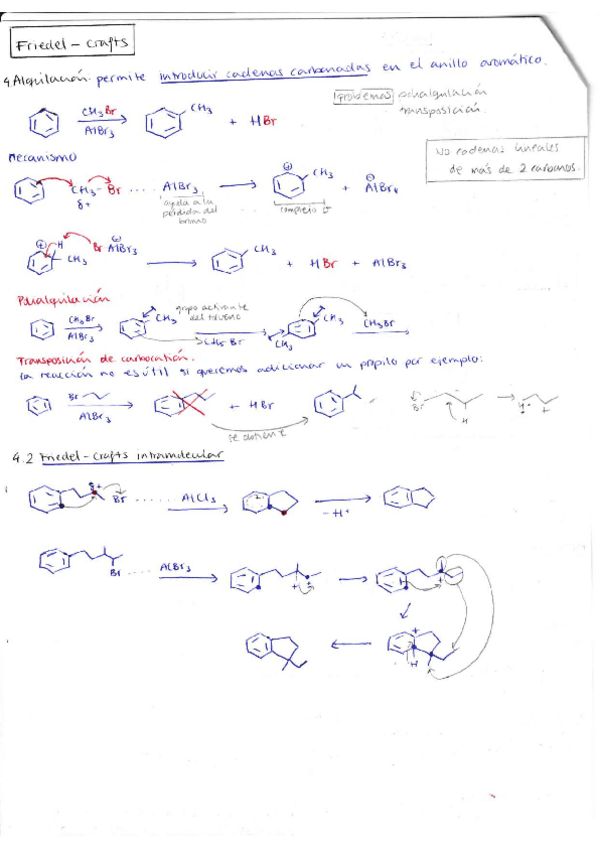 Friedel-Crafts
4. Alquilación. permite introducir cadenas carbonadas en el anillo aromático.
problemas polialquilación
transposición.
CH3Br
AlBr3
CH3
+ HBr
No cadenas lineales
de más de 2 carbonos.
Mecanismo
CH3 - Br ..... AlBr3
δ+
ayuda a la
pérdida del
bromo
CH3
complejo σ
+ AlBr4
H
CH3
Br AlBr3
CH3
+ HBr + AlBr3
Polialquilación
CH3Br
AlBr3
CH3
grupo activante
del tolueno
CH3Br
CH3
CH3
CH3Br
Transposición de carbocatión.
la reacción no es útil si queremos adicionar un propilo por ejemplo:
Br
AlBr3
+ HBr
se obtiene
Br
H
+
4.2 Friedel-Crafts intramolecular
δ+
Br ...... AlCl3
-H+
Br ..... AlBr3
+
+
H